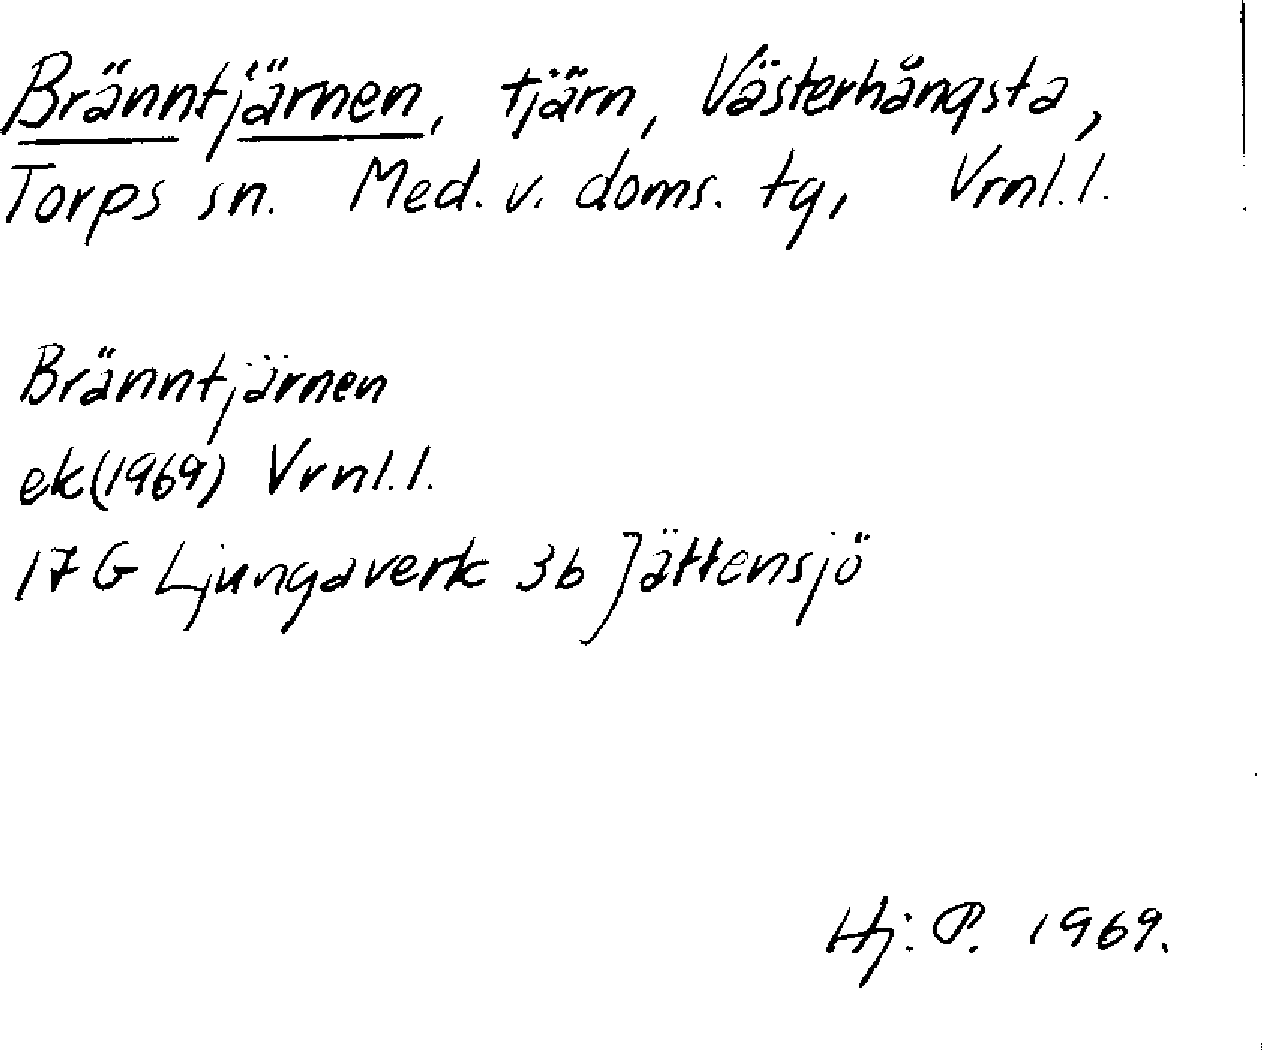 Bränntjärnen, tjärn, Västerhångsta,
Torps sn. Med. v. doms. tg, Vrnl.l.
Bränntjärnen
ek(1969) Vrnl.l.
17 G Ljungaverk 3b Jättensjö
Hj: P. 1969.